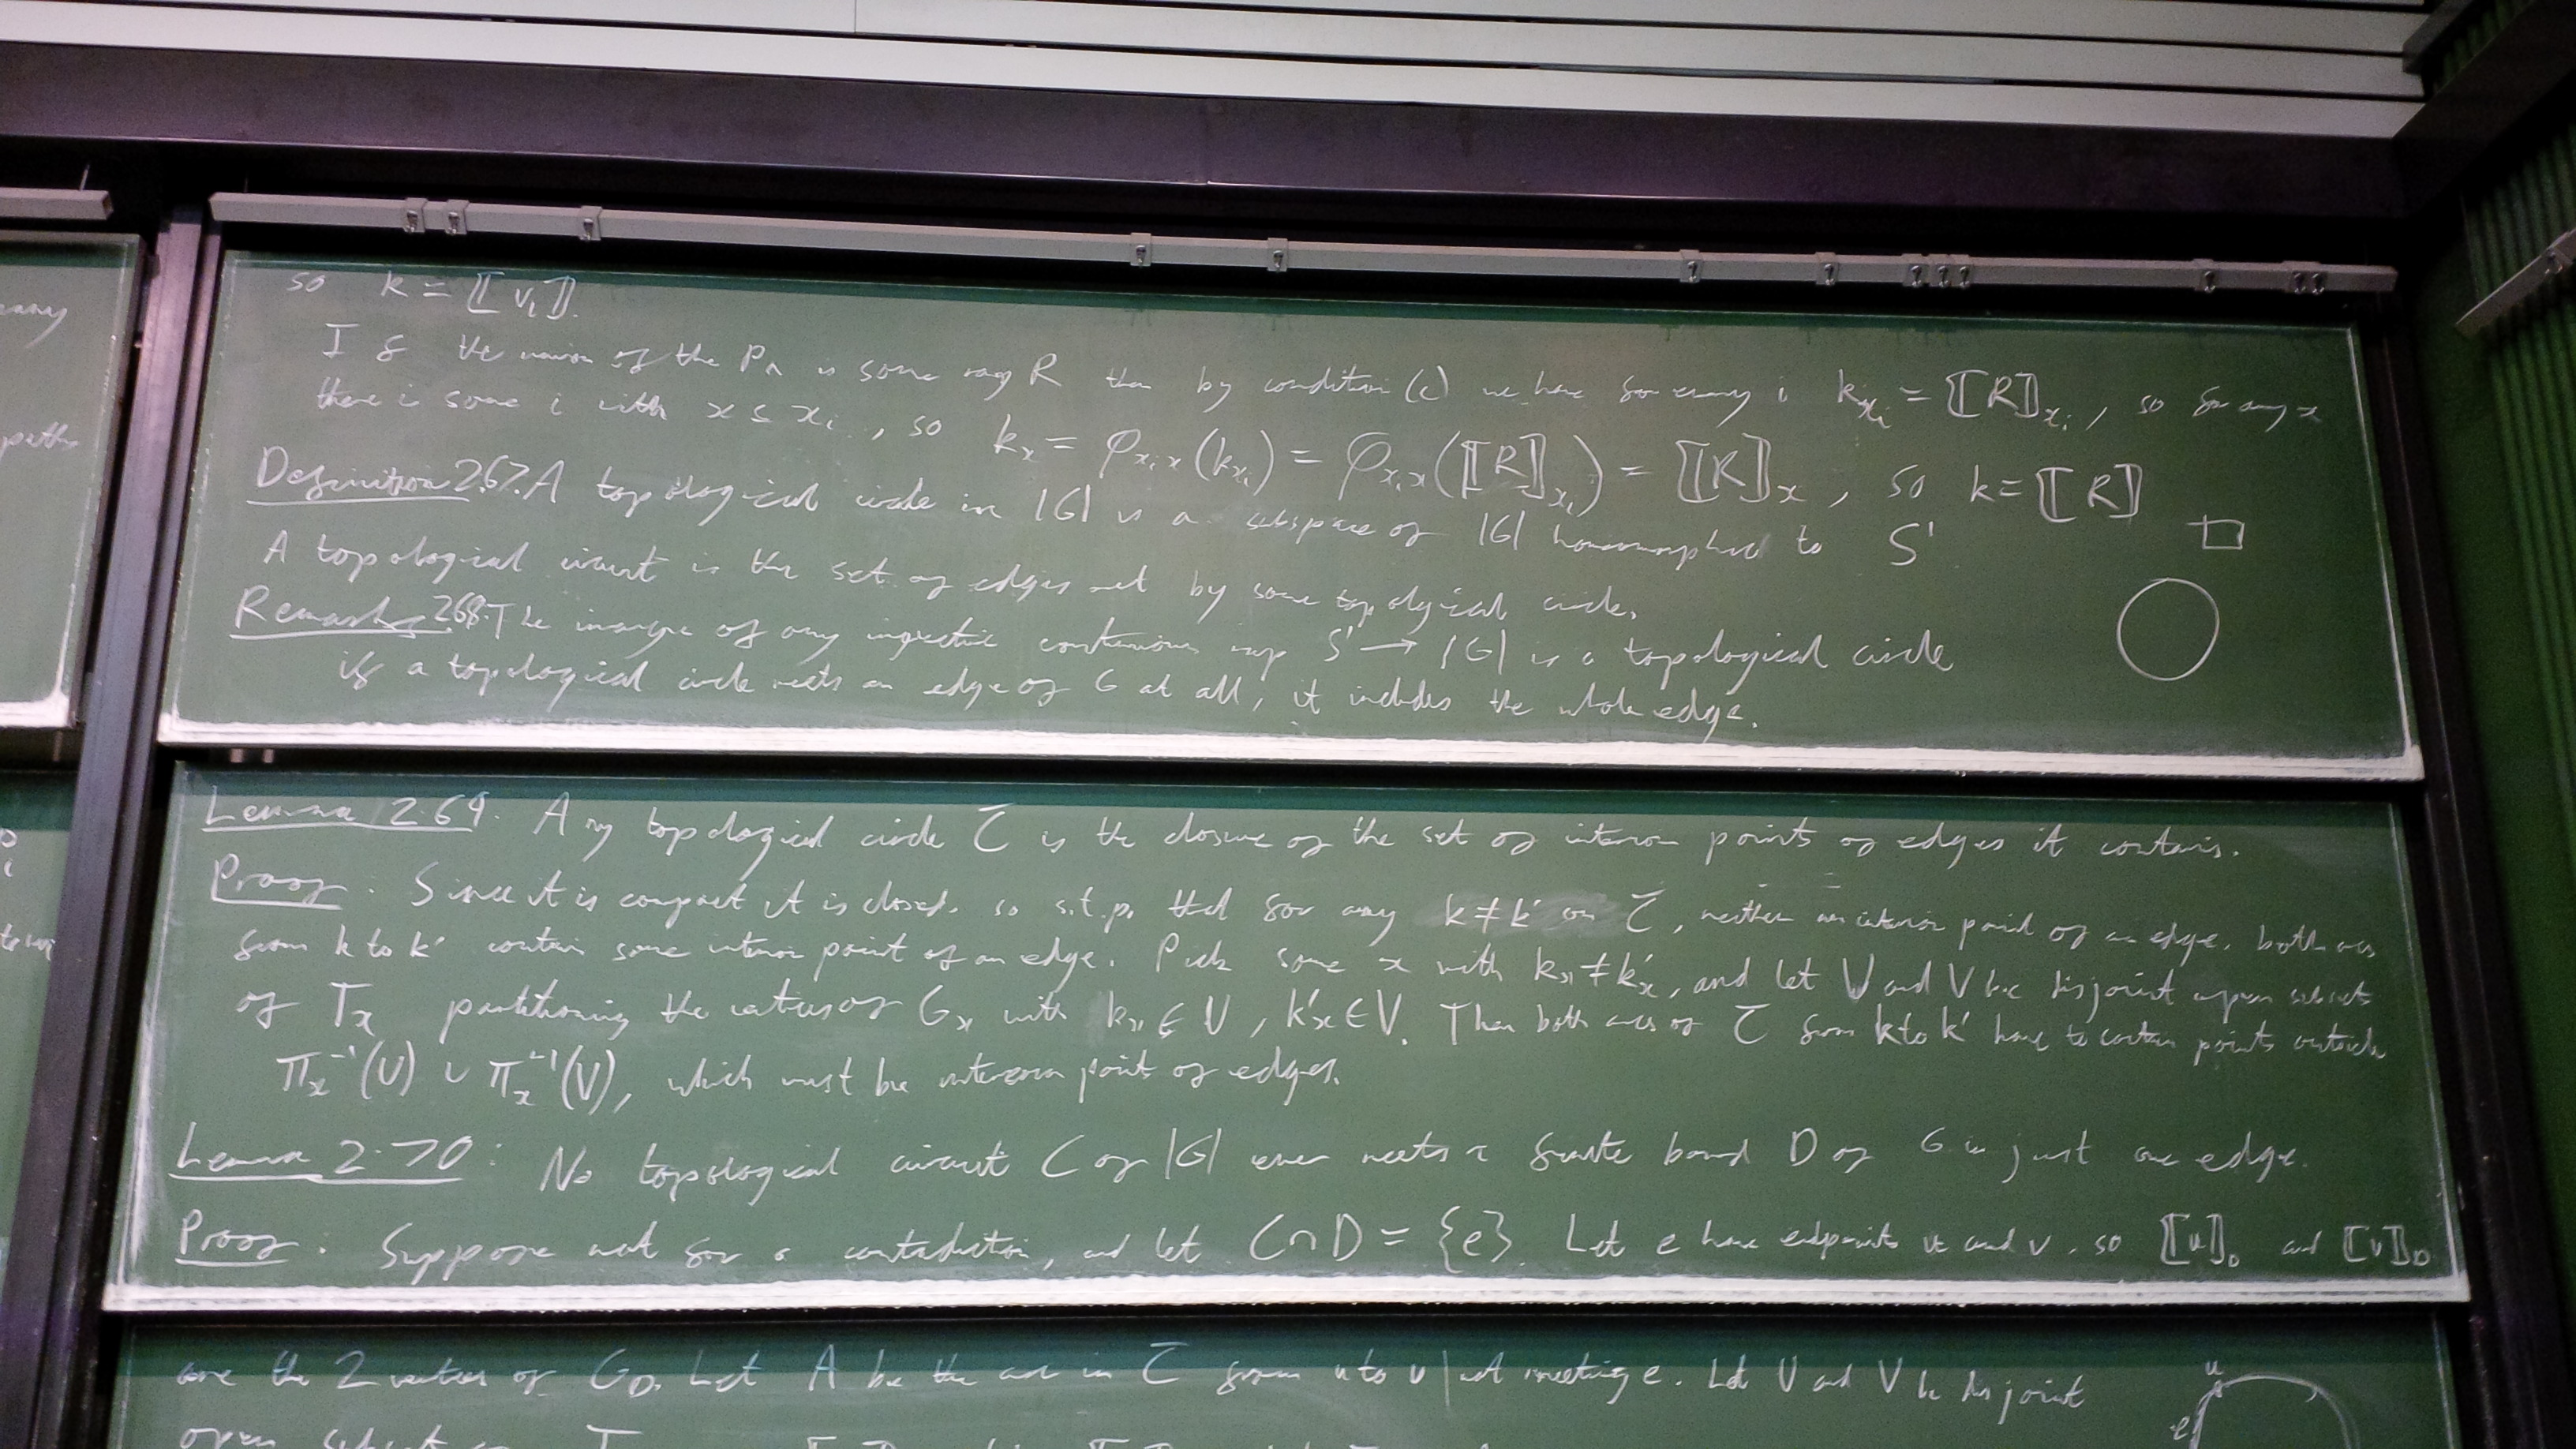 many
paths
so k = ⟦v₁⟧.
If the union of the Pₙ is some ray R then by condition (c) we have for every i k_{x_i} = ⟦R⟧_{x_i}, so for any x
there is some i with x ≤ x_i, so k_x = φ_{x_i x}(k_{x_i}) = φ_{x_i x}(⟦R⟧_{x_i}) = ⟦R⟧_x, so k = ⟦R⟧ □
Definition 2.67. A topological circle in |G| is a subspace of |G| homeomorphic to S¹
A topological circuit is the set of edges met by some topological circle.
Remarks 2.68. The image of any injective continuous map S¹ → |G| is a topological circle
if a topological circle meets an edge of G at all, it includes the whole edge.
Lemma 2.69. Any topological circle C̄ is the closure of the set of interior points of edges it contains.
Proof. Since it is compact it is closed, so s.t.p. that for any k ≠ k' on C̄, neither an interior point of an edge, both arcs
from k to k' contain some interior point of an edge. Pick some x with k_x ≠ k'_x, and let U and V be disjoint open subsets
of T_x partitioning the vertices of G_x with k_x ∈ U, k'_x ∈ V. Then both arcs of C̄ from k to k' have to contain points outside
π_x⁻¹(U) ∪ π_x⁻¹(V), which must be interior points of edges.
Lemma 2.70: No topological circuit C of |G| ever meets a finite bond D of G in just one edge.
Proof. Suppose not for a contradiction, and let C∩D = {e}. Let e have endpoints u and v, so ⟦u⟧_D and ⟦v⟧_D
are the 2 vertices of G_D. Let A be the arc in C̄ from u to v not meeting e. Let U and V be disjoint
u
e
open